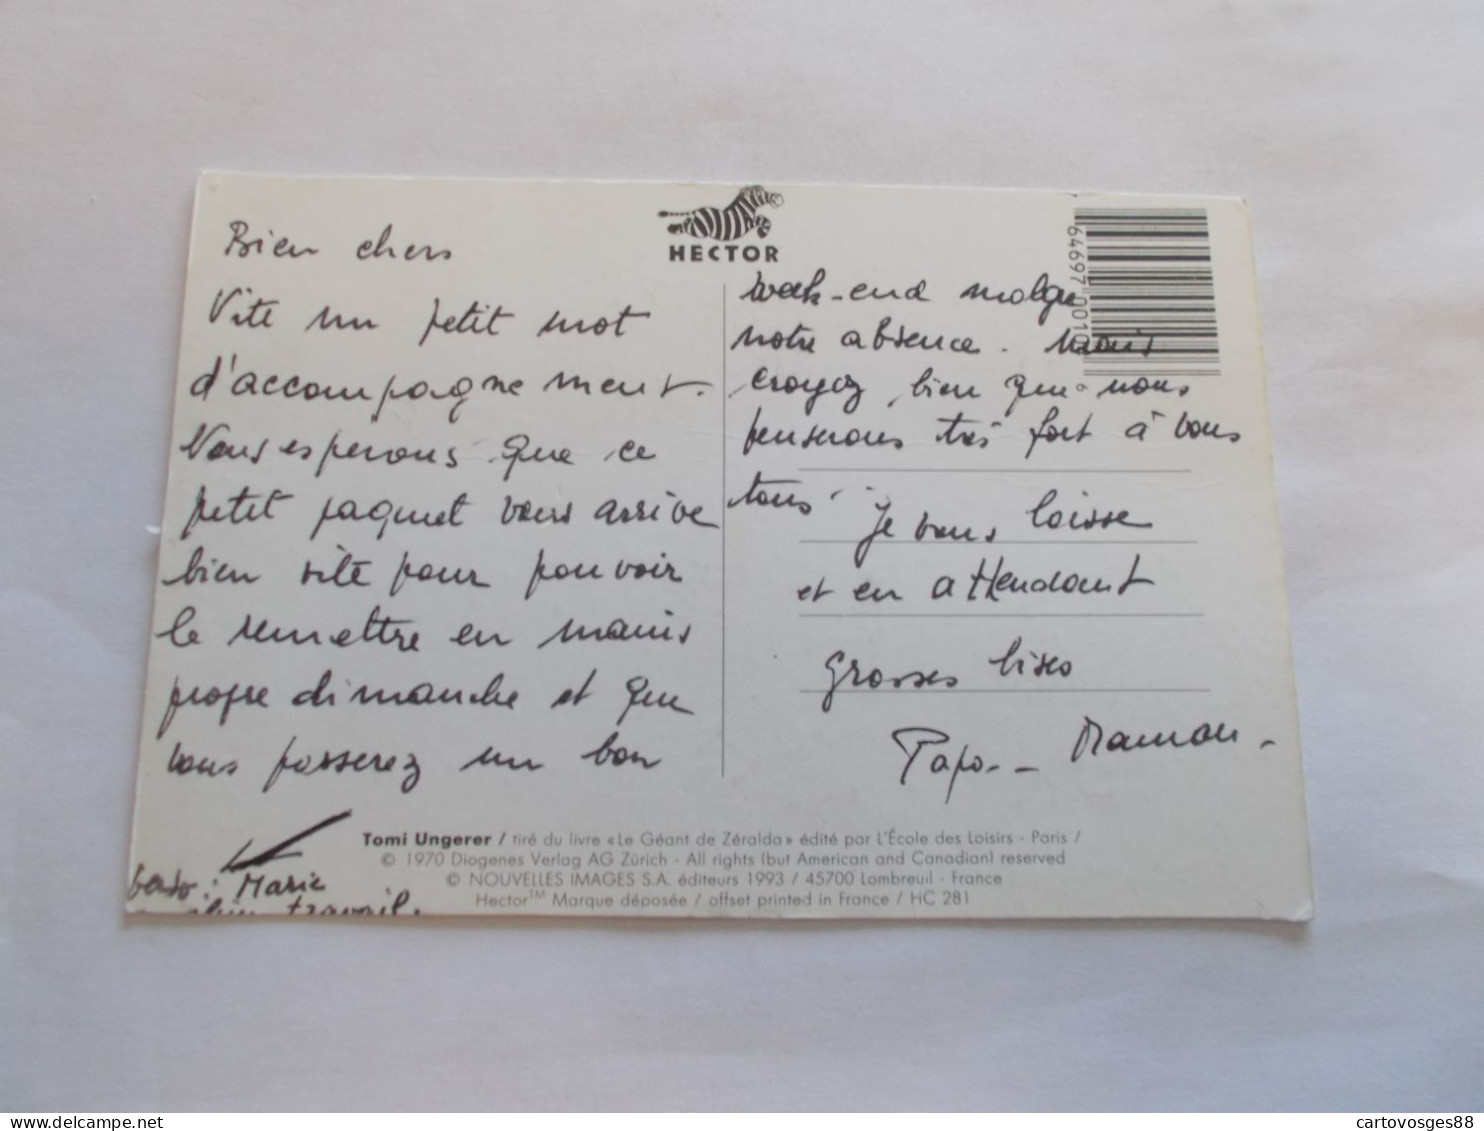 HECTOR
64697 0010
Bien chers
Vite un petit mot
d'accompagnement.
Nous esperons que ce
petit paquet vous arrive
bien vite pour pouvoir
le remettre en mains
propre dimanche et que
vous passerez un bon
week-end malgré
notre absence. Mais
croyez bien que nous
penserons très fort à vous
tous. Je vous laisse
et en attendant
grosses bises
Papa - Maman -
Tomi Ungerer / tiré du livre «Le Géant de Zéralda» édité par L'École des Loisirs - Paris /
© 1970 Diogenes Verlag AG Zürich - All rights (but American and Canadian) reserved
© NOUVELLES IMAGES S.A. éditeurs 1993 / 45700 Lombreuil - France
Hector™ Marque déposée / offset printed in France / HC 281
Marie
travail.
www.delcampe.net
cartovosges88